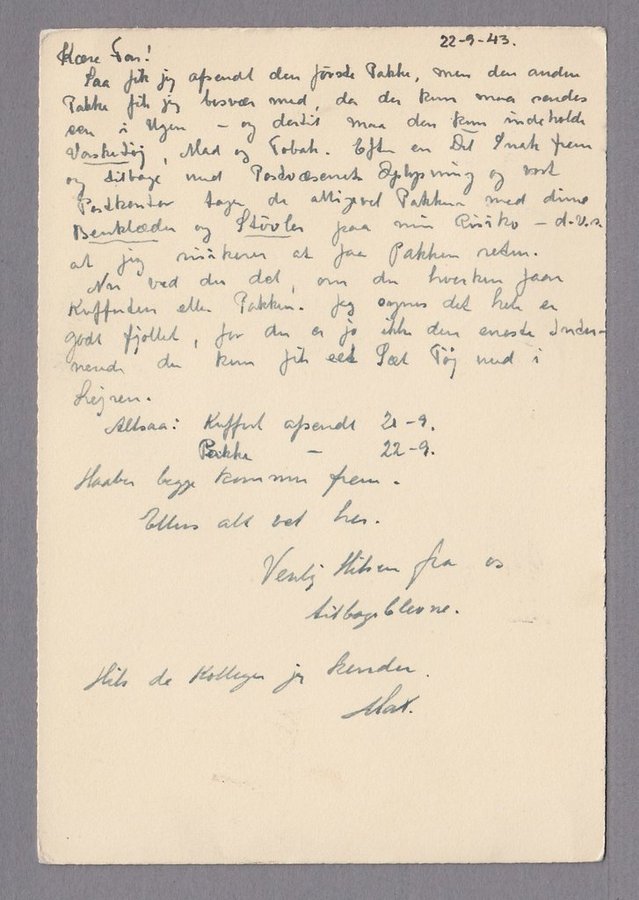 22-9-43.
Kære Far!
Saa fik jeg afsendt den første Pakke, men den anden
Pakke fik jeg besvær med, da der kun maa sendes
een i Ugen – og dertil maa den kun indeholde
Vasketøj, Mad og Tobak. Efter en Del Snak frem
og tilbage med Postvæsenets Oplysning og vort
Postkontor tager de alligevel Pakken med dine
Benklæder og Støvler paa min Risiko – d.v.s.
at jeg risikerer at faa Pakken retur.
Nu ved du det, om du hverken faar
Kufferten eller Pakken. Jeg synes det hele er
godt fjollet, for du er jo ikke den eneste Inter-
nerede der kun fik eet Sæt Tøj med i
Lejren.
Altsaa: Kuffert afsendt 21-9.
Pakke – 22-9.
Haaber begge kommer frem.
Ellers alt vel her.
Venlig Hilsen fra os
tilbageblevne.
Hils de Kolleger jeg kender.
Max.